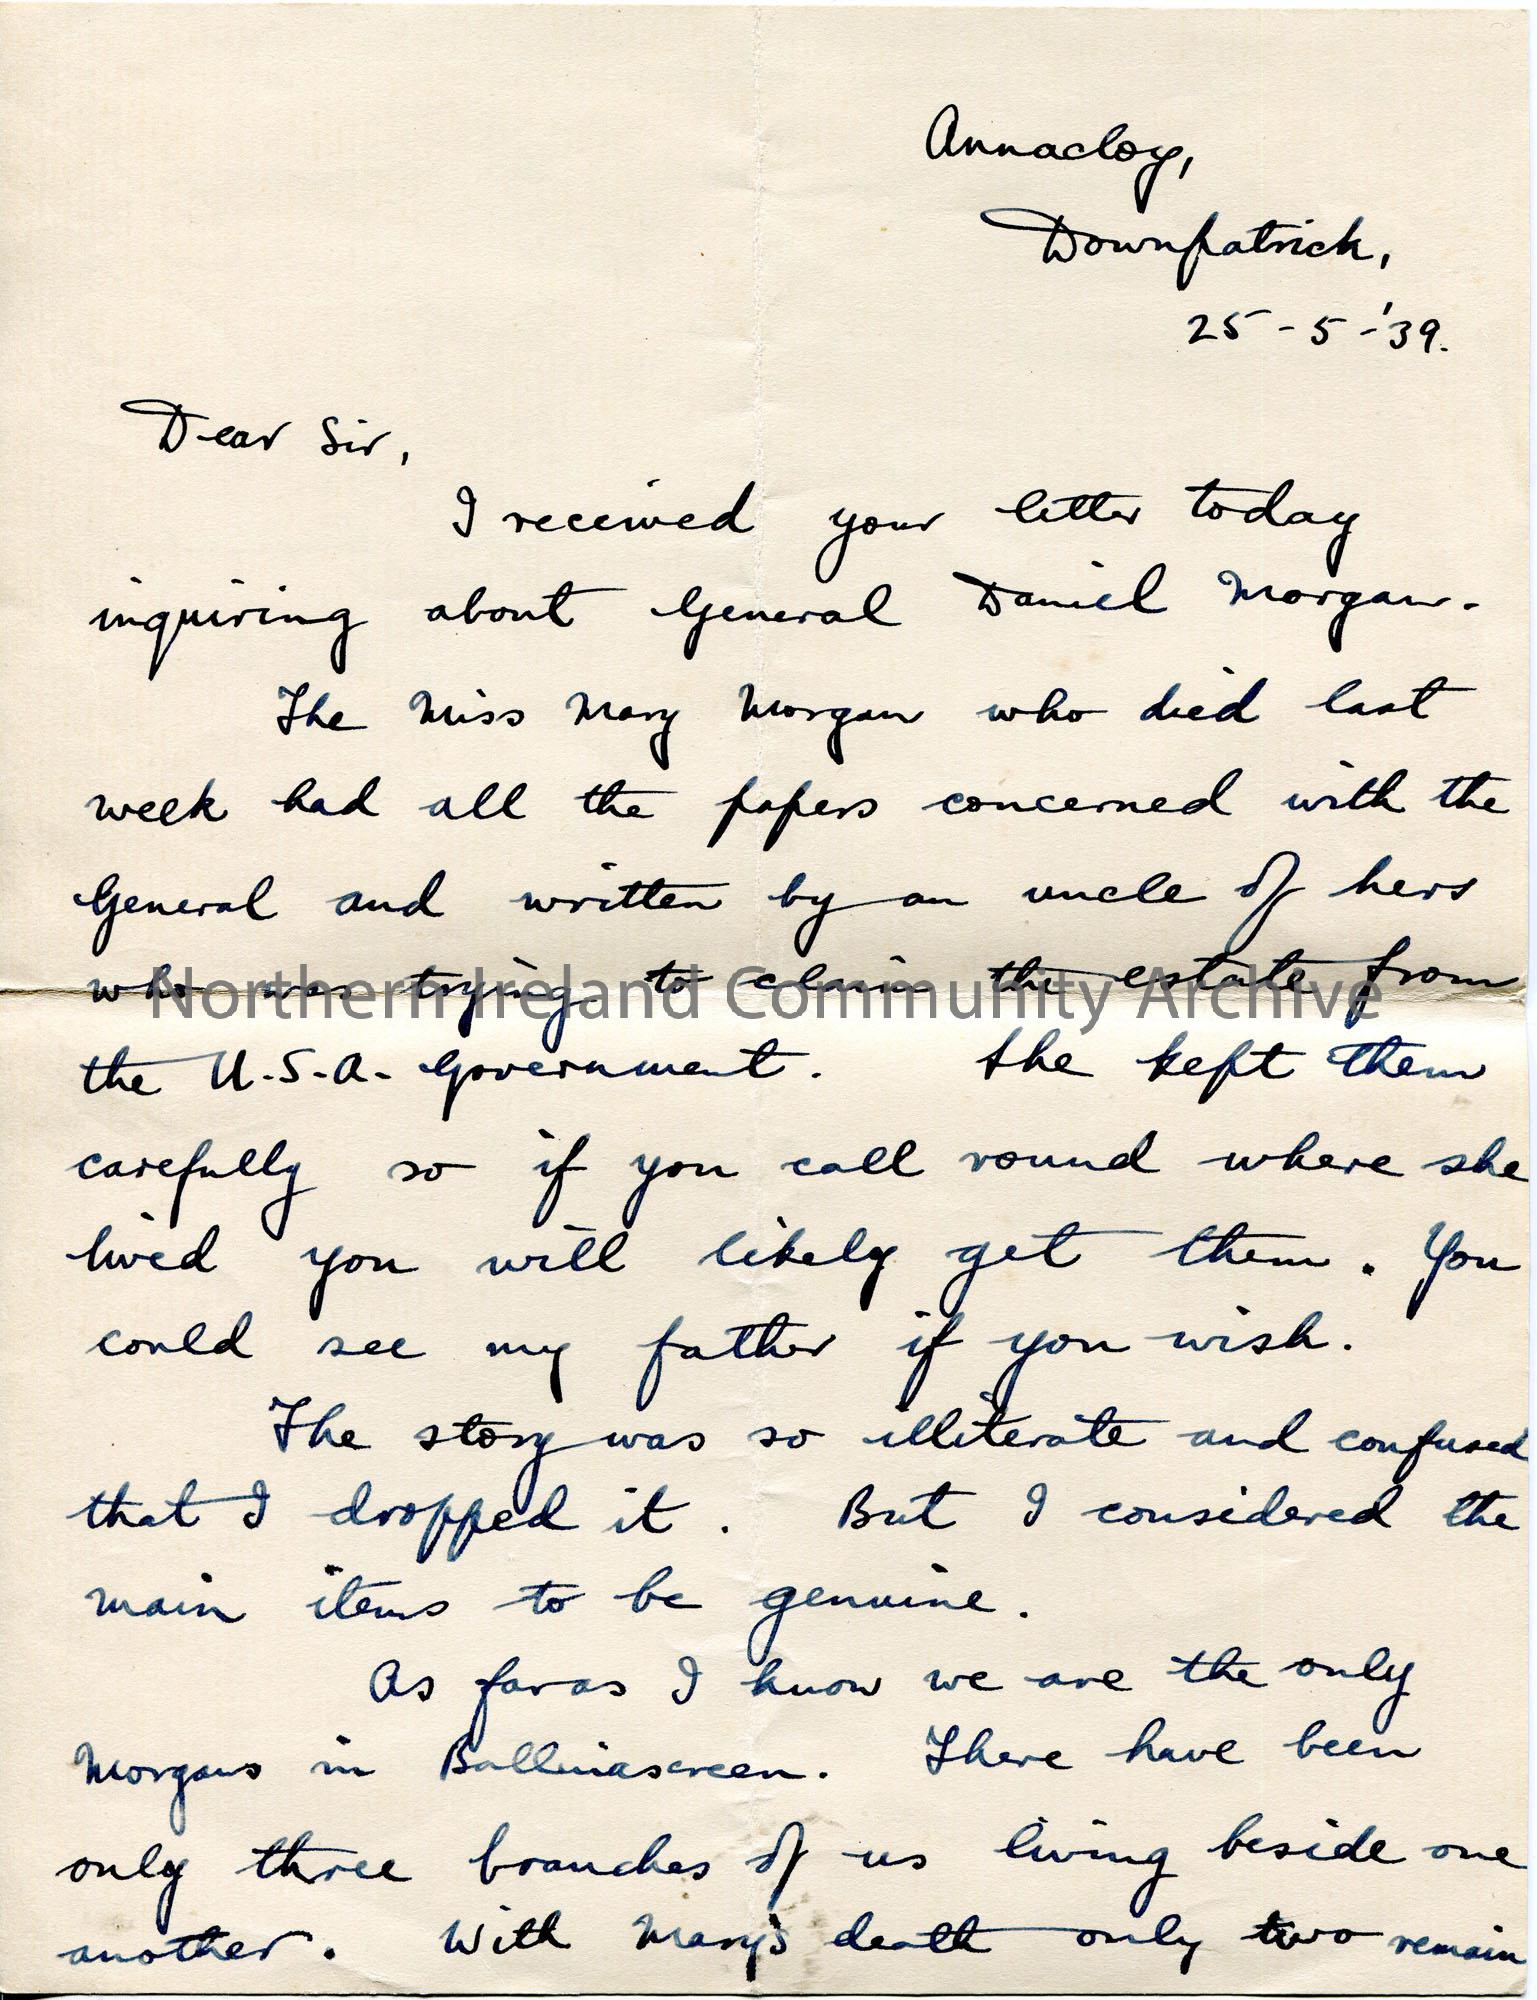 Annacloy,
Downpatrick,
25-5-'39.
Dear Sir,
I received your letter today
inquiring about General Daniel Morgan.
The Miss Mary Morgan who died last
week had all the papers concerned with the
General and written by an uncle of hers
who was trying to claim the estate from
Northern Ireland Community Archive
the U.S.A. Government. She kept them
carefully so if you call round where she
lived you will likely get them. You
could see my father if you wish.
The story was so illiterate and confused
that I dropped it. But I considered the
main items to be genuine.
As far as I know we are the only
Morgans in Ballinascreen. There have been
only three branches of us living beside one
another. With Mary's death only two remain